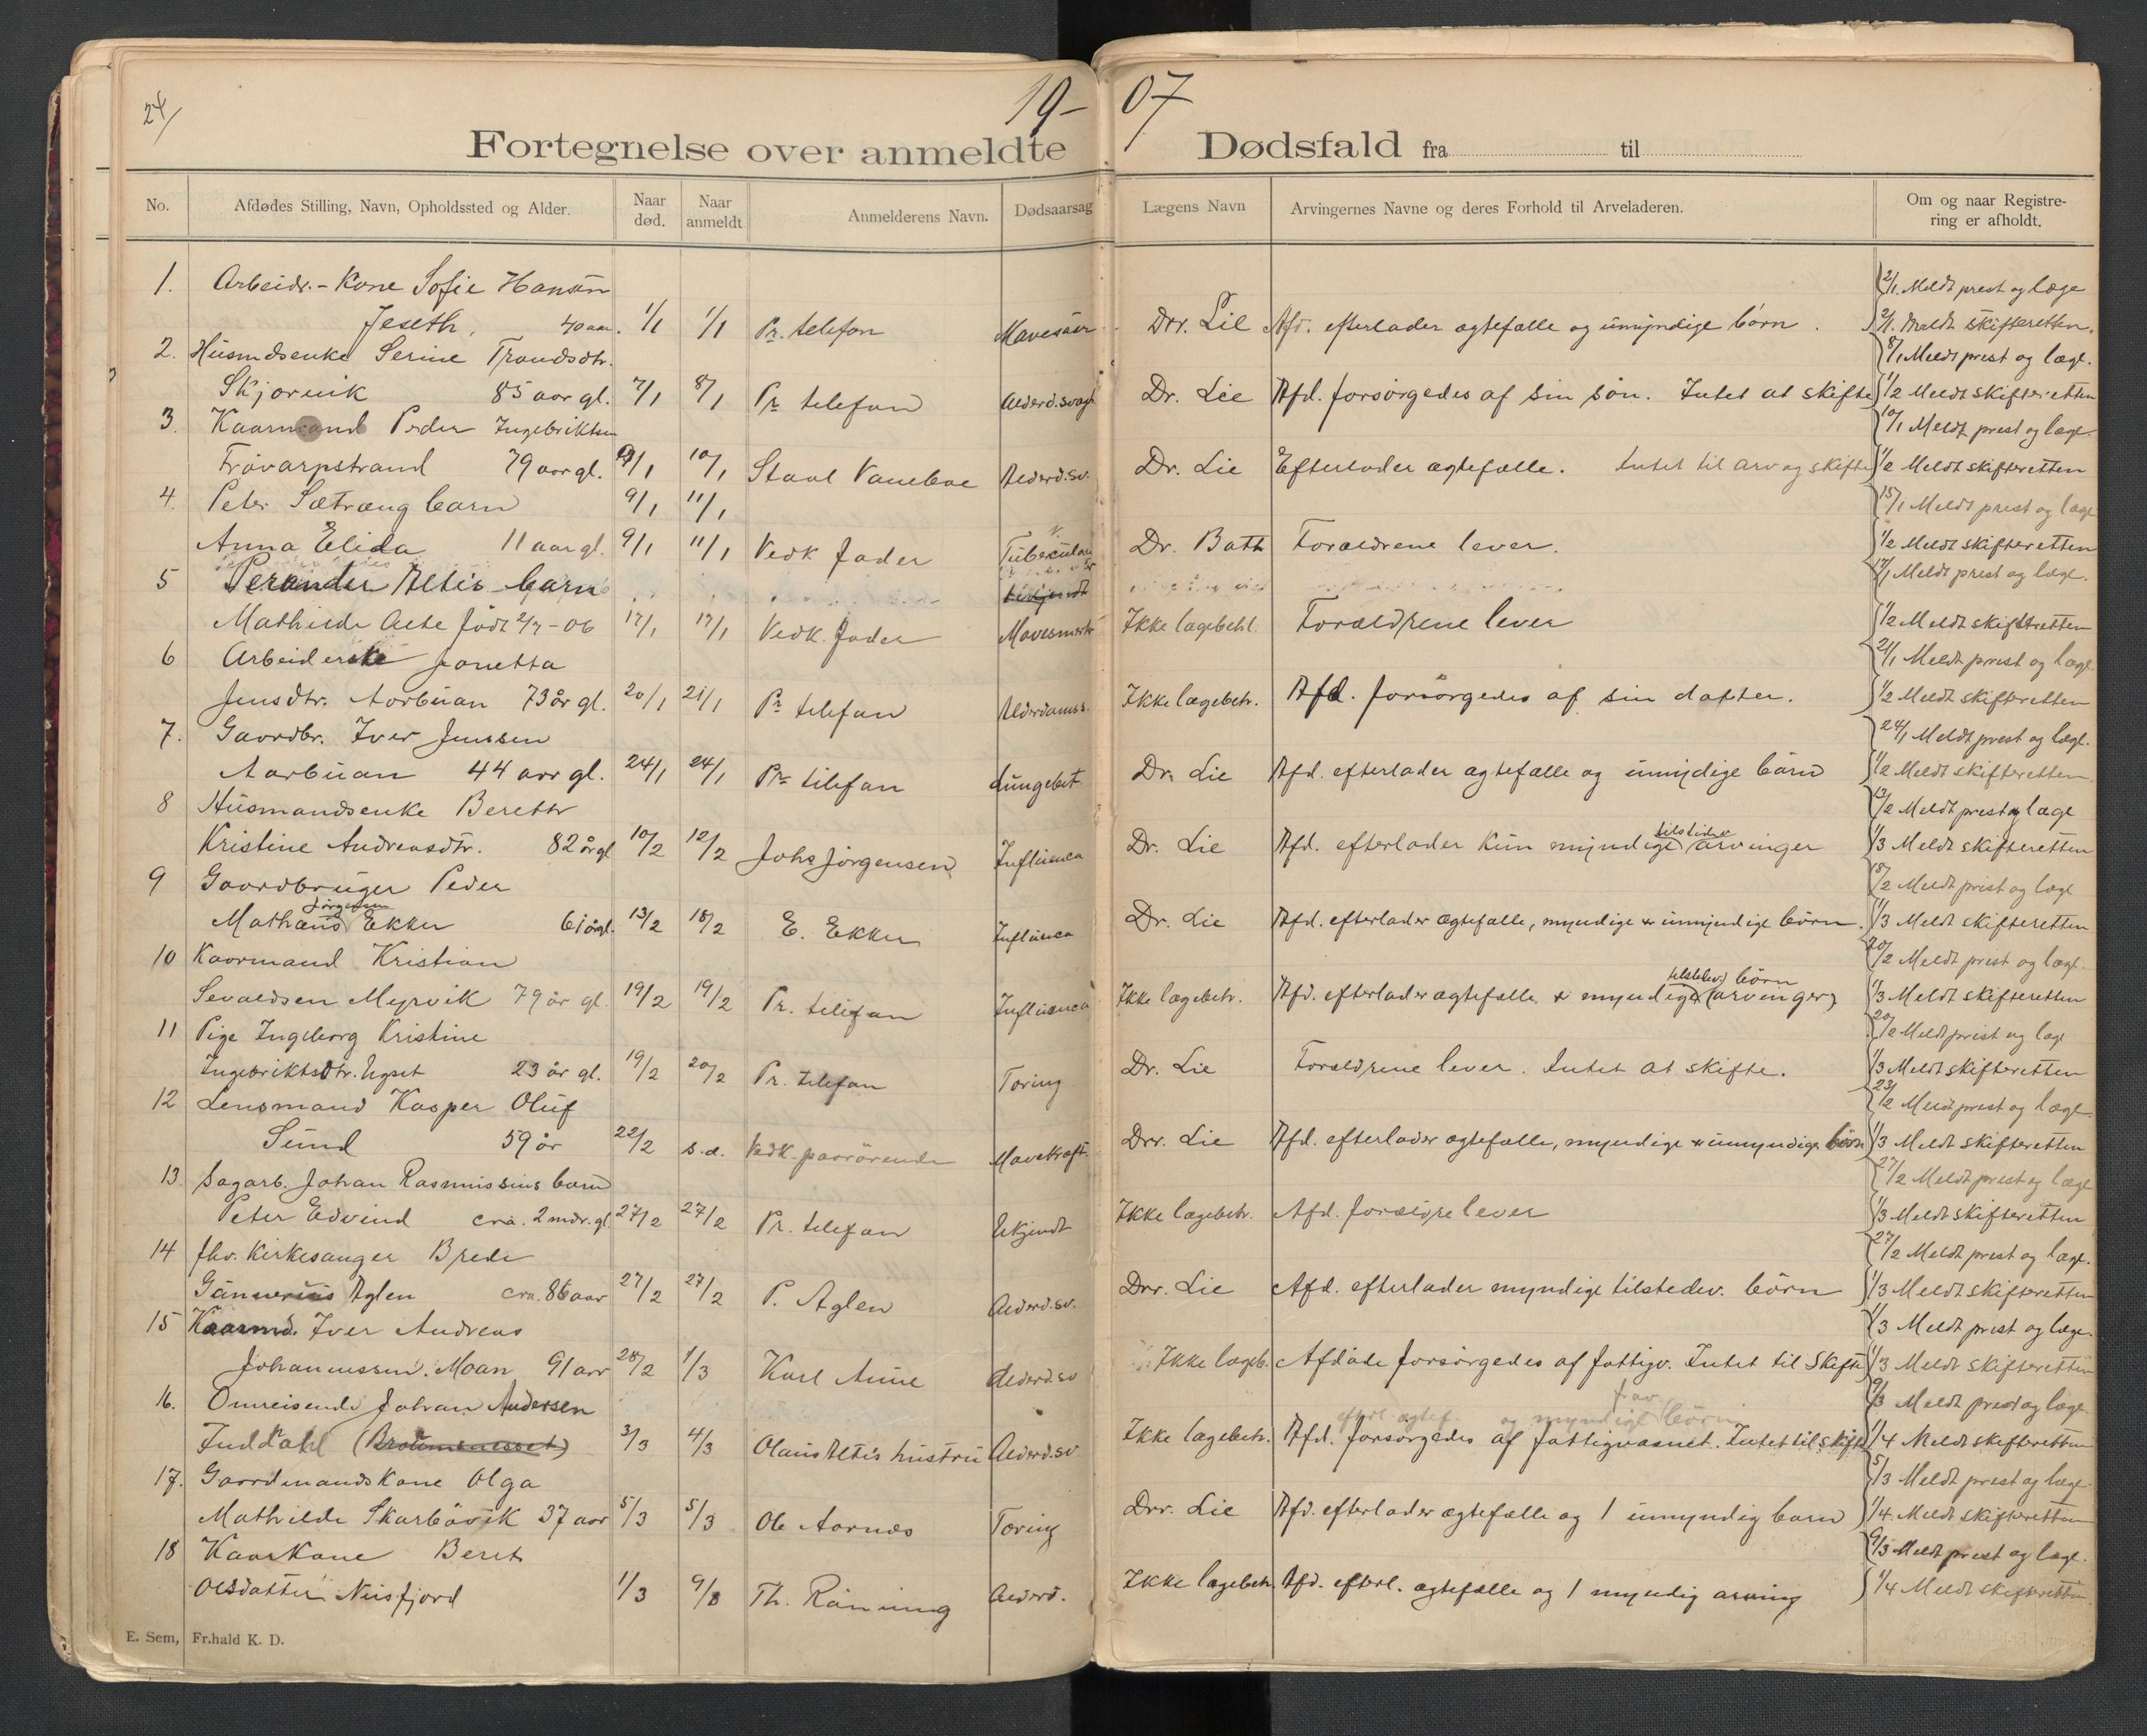 24/
19-07
Fortegnelse over anmeldte Dødsfald fra til
No. Afdødes Stilling, Navn, Opholdssted og Alder. Naar død. Naar anmeldt Anmelderens Navn. Dødsaarsag Lægens Navn Arvingernes Navne og deres Forhold til Arveladeren. Om og naar Registrering er afholdt.
1. Arbeidr.-Kone Sofie Hansen 2/1. Meldt prest og læge
Jeseth, 40 aar. 1/1 1/1 Pr. telefon Mavesaar Drr. Lie Afd. efterlader ægtefælle og umyndige børn. 2/1. Meldt skifteretten.
2. Husmdsenke Serine Trondsdtr. 8/1 Meldt prest og læge.
Skjørvik 85 aar gl. 7/1 8/1 Pr telefon Alderd.svagh. Dr. Lie Afd. forsørgedes af sin søn. Intet at skifte 1/2 Meldt skifteretten
3. Kaarmand Peder Ingebriktsen 10/1 Meldt prest og læge.
Frøvarpstrand 79 aar gl. 9/1 10/1 Staal Vaneboe Alderd.sv. Dr. Lie Efterlader ægtefælle. Intet til arv og skifte 1/2 Meldt skifteretten
4. Peter Sætrang barn 9/1 11/1 15/1 Meldt prest og læge
Anna Elida 11 aar gl. 9/1 11/1 Vedk fader Tuberculose Dr. Bath Forældrene lever. 1/2 Meldt skifteretten
5 Perander Altis barn 17/1 Meldt prest og læge.
Mathilde Aete født 2/7-06 17/1 17/1 Vedk. fader Mavesmerter Ikke lægebehl. Forældrene lever 1/2 Meldt skifteretten
6 Arbeiderske Jonetta 21/1 Meldt prest og læge
Jensdtr. Aarbuan 73 år gl. 20/1 21/1 Pr telefon Alderdomss. Ikke lægebeh. Afd. forsørgedes af sin datter. 1/2 Meldt skifteretten
7. Gaardbr. Iver Jenssen 24/1 Meldt prest og læge.
Aarbuan 44 aar gl. 24/1 24/1 Pr telefon Lungebet. Dr. Lie Afd. efterlader ægtefælle og umyndige børn 1/2 Meldt skifteretten
8 Husmandsenke Berette 13/2 Meldt prest og læge
Kristine Andreasdtr. 82 år gl 10/2 12/2 Johs Jørgensen Influenca Dr. Lie Afd. efterlader kun myndige tilstedev. arvinger 1/3 Meldt skifteretten
9 Gaardbruger Peder 18/2 Meldt prist og læge
Mathans Jørgensen Ekker 61 år gl. 13/2 18/2 E. Ekker Influenca Dr. Lie Afd. efterlader ægtefælle, myndige & umyndige børn. 1/3 Meldt skifteretten
10 Kaarmand Kristian 20/2 Meldt prest og læge.
Sevaldsen Myrvik 79 år gl. 19/2 19/2 Pr. telefon Influenca Ikke lægebeh. Afd. efterlader ægtefælle & myndige tilstedev. børn (arvinger) 1/3 Meldt skifteretten
11 Pige Ingeborg Kristine 20/2 Meldt prest og læge
Ingebriktsdtr. Ugset 23 år gl. 19/2 20/2 Pr. telefon Tæring Dr. Lie Forældrene lever. Intet at skifte. 1/3 Meldt skifteretten
12 Lensmand Kasper Oluf 23/2 Meldt prest og læge
Sund 59 år 22/2 s.d. Vedk. paarørende Mavekræft Drr. Lie Afd. efterlader ægtefælle, myndige & umyndige børn 1/3 Meldt skifteretten
13. Sagarb. Johan Rasmussens barn 27/2 Meldt prest og læge
Peter Edvind cra. 2 mdr. gl. 27/2 27/2 Pr. telefon Ukjendt Ikke lægebeh. Afd. forældre lever 1/3 Meldt skifteretten
14 fhv. Kirkesanger Brede 27/2 Meldt prest og læge.
Gunnerius Aglen cra. 86 aar 27/2 27/2 P. Aglen Alderd.sv. Drr. Lie Afd. efterlader myndige tilstedev. børn 1/3 Meldt skifteretten
15 Kaarmd. Iver Andreas 1/3 Meldt prest og læge.
Johannessen Moan 91 aar 28/2 1/3 Karl Aune Alderd.sv Ikke lægeb. Afdøde forsørgedes af fattigv. Intet til Skifte 1/3 Meldt skifteretten
16. Omreisende Johan Andersen 9/3 Meldt prest og læge.
efterl ægtef. og myndige børn
Inddahl (Braumsnesset) 3/3 4/3 Olaus Altis hustru Alderd.sv. Ikke lægebeh. Afd. forsørgedes af fattigvæsnet. Intet til skifte 1/4 Meldt skifteretten
17. Gaardmandskone Olga 5/3 Meldt prest og læge.
Mathilde Skarbøvik 37 aar 5/3 5/3 Ole Aarnes Tæring Drr. Lie Afd. efterlader ægtefælle og 1 umyndig barn 1/4. Meldt skifteretten
18 Kaarkone Beret 9/3 Meldt prest og læge.
Olsdatter Neisfjord 1/3 9/3 Th. Rønning Alderd. Ikke lægebeh. Afd. efterl. ægtefælle og 1 myndig arving 1/4 Meldt skifteretten
E. Sem, Fr.hald K. D.